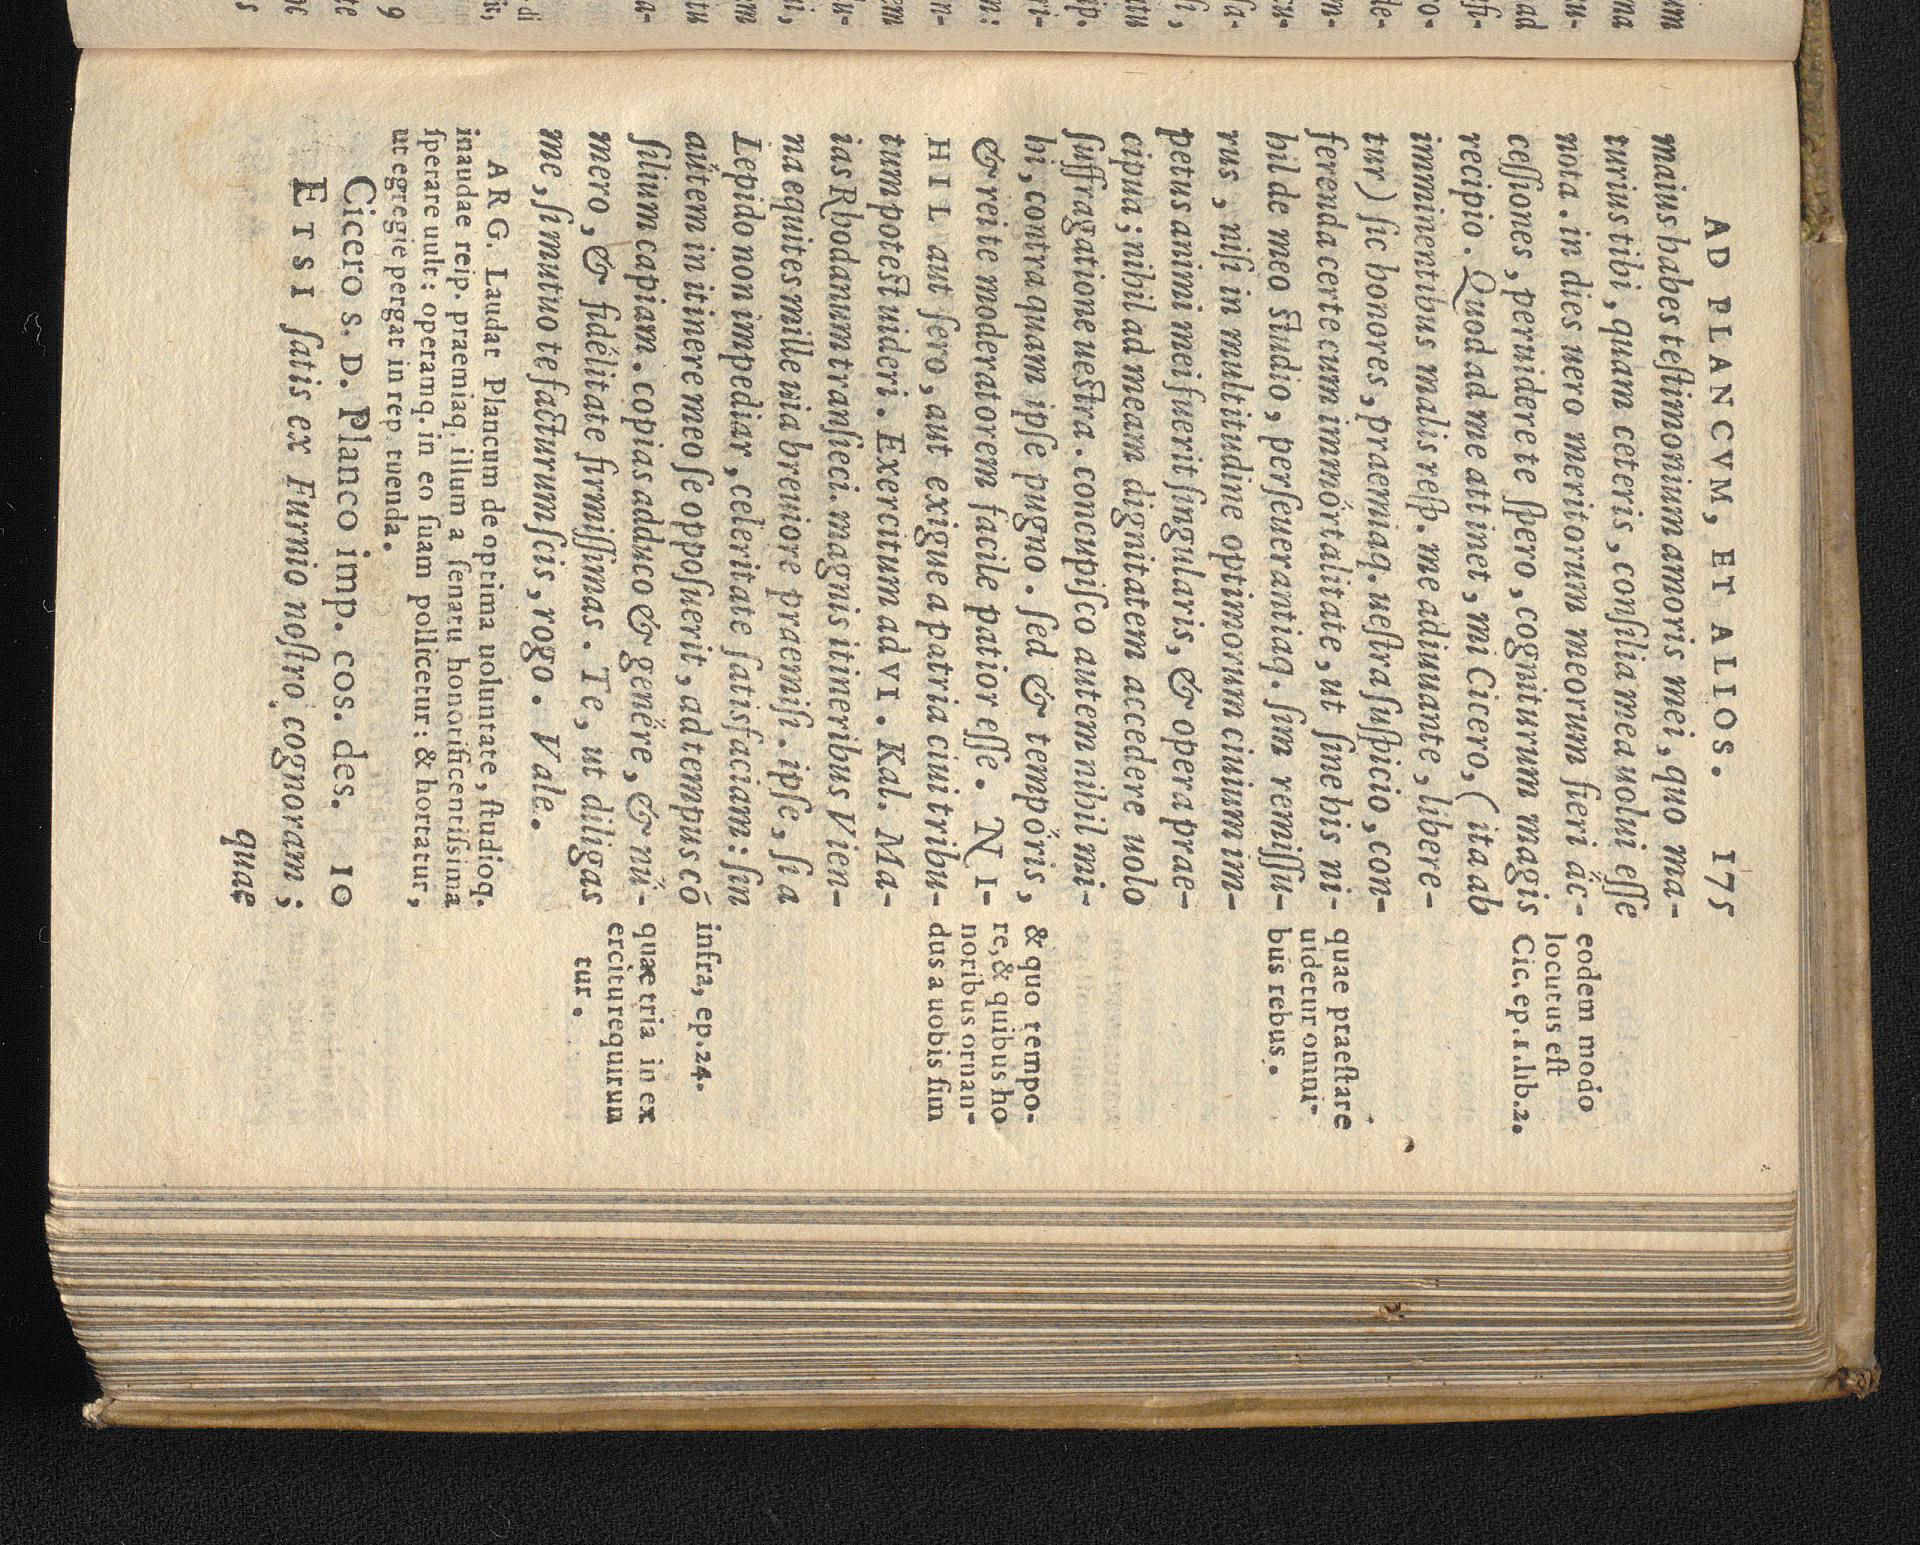 AD PLANCVM, ET ALIOS. 175
maius habes testimonium amoris mei, quo ma-
turius tibi, quam ceteris, consilia mea uolui esse
nota. in dies uero meritorum meorum fieri ăc-
cessiones, peruidere te spero, cogniturum magis
recipio. Quod ad me attinet, mi Cicero, (ita ab
imminentibus malis resp. me adiuuante, libere-
tur) sic honores, praemiaq. uestra suspicio, con-
ferenda certe cum immŏrtalitate, ut sine his ni-
hil de meo studio, perseuerantiaq. sim remissu-
rus, nisi in multitudine optimorum ciuium im-
petus animi mei fuerit singularis, & opera prae-
cipua; nihil ad meam dignitatem accedere uolo
suffragatione uestra. concupisco autem nihil mi-
hi, contra quam ipse pugno. sed & tempŏris,
& rei te moderatorem facile patior esse. NI-
HIL aut sero, aut exigue a patria ciui tribu-
tum potest uideri. Exercitum ad VI. Kal. Ma-
ias Rhodanum transieci. magnis itineribus Vien-
na equites mille uia breuiore praemisi. ipse, si a
Lepido non impediar, celeritate satisfaciam: sin
aŭtem in itinere meo se opposuerit, ad tempus cō
silium capiam. copias adduco & genĕre, & nŭ-
mero, & fidĕlitate firmissimas. Te, ut diligas
me, si mutuo te facturum scis, rogo. Vale.
ARG. Laudat Plancum de optima uoluntate, studioq.
inaudae reip. praemiaq. illum a senatu honorificentissima
sperare uult: operamq. in eo suam pollicetur: & hortatur,
ut egregie pergat in rep. tuenda.
Cicero S. D. Planco imp. cos. des. 10
ETSI satis ex Furnio nostro cognoram;
quae
eodem modo
locutus est
Cic. ep. 1. lib. 2.
quae praestare
uidetur omni-
bus rebus.
& quo tempo-
re, & quibus ho
noribus ornan-
dus a uobis sim
infra, ep. 24.
quae tria in ex
ercitu requirun
tur.